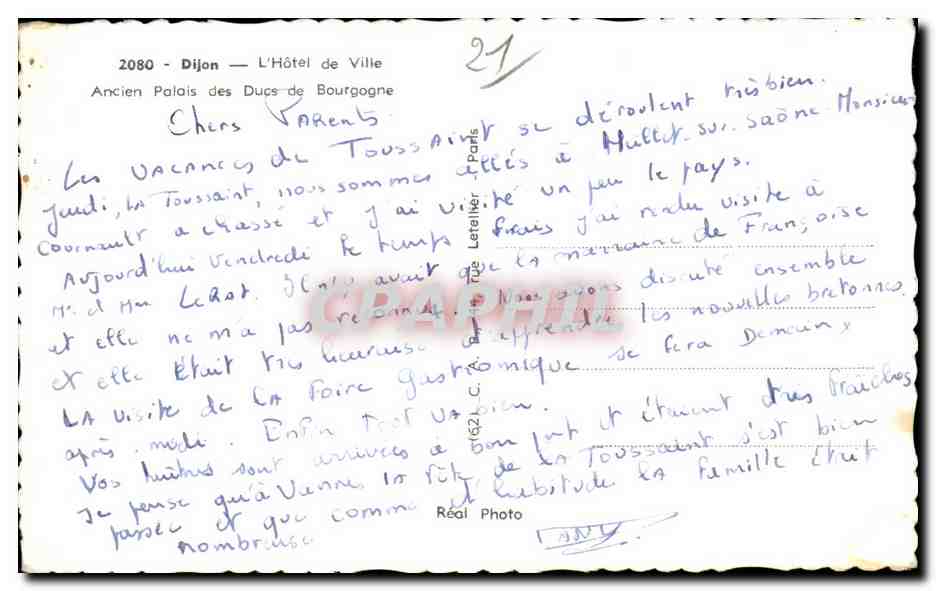 21
2080 - Dijon — L'Hôtel de Ville
Ancien Palais des Ducs de Bourgogne
Chers PARents
Les VACANCES de TOUSSAINT se déroulent très bien.
Jeudi, LA Toussaint, nous sommes allés à sur Saône. Monsieur
Cournault a chassé et j'ai visité un peu le pays.
Aujourd'hui Vendredi le temps frais j'ai rendu visite à
Mr. et Mme LeRat. Il n'y avait que LA marraine de Françoise
et elle ne m'a pas reconnu. Nous avons discuté ensemble
et elle était très heureuse d'apprendre les nouvelles bretonnes.
LA visite de LA Foire Gastronomique se fera Demain
après-midi. Enfin tout VA bien.
Vos huîtres sont arrivées à bon port et étaient très fraîches
Je pense qu'à Vannes LA fête de LA Toussaint s'est bien
passée et que comme d'habitude LA famille était
nombreuse
Réal Photo
(62) - C. A. P. - 44, rue Letellier - Paris
CPAPHIL